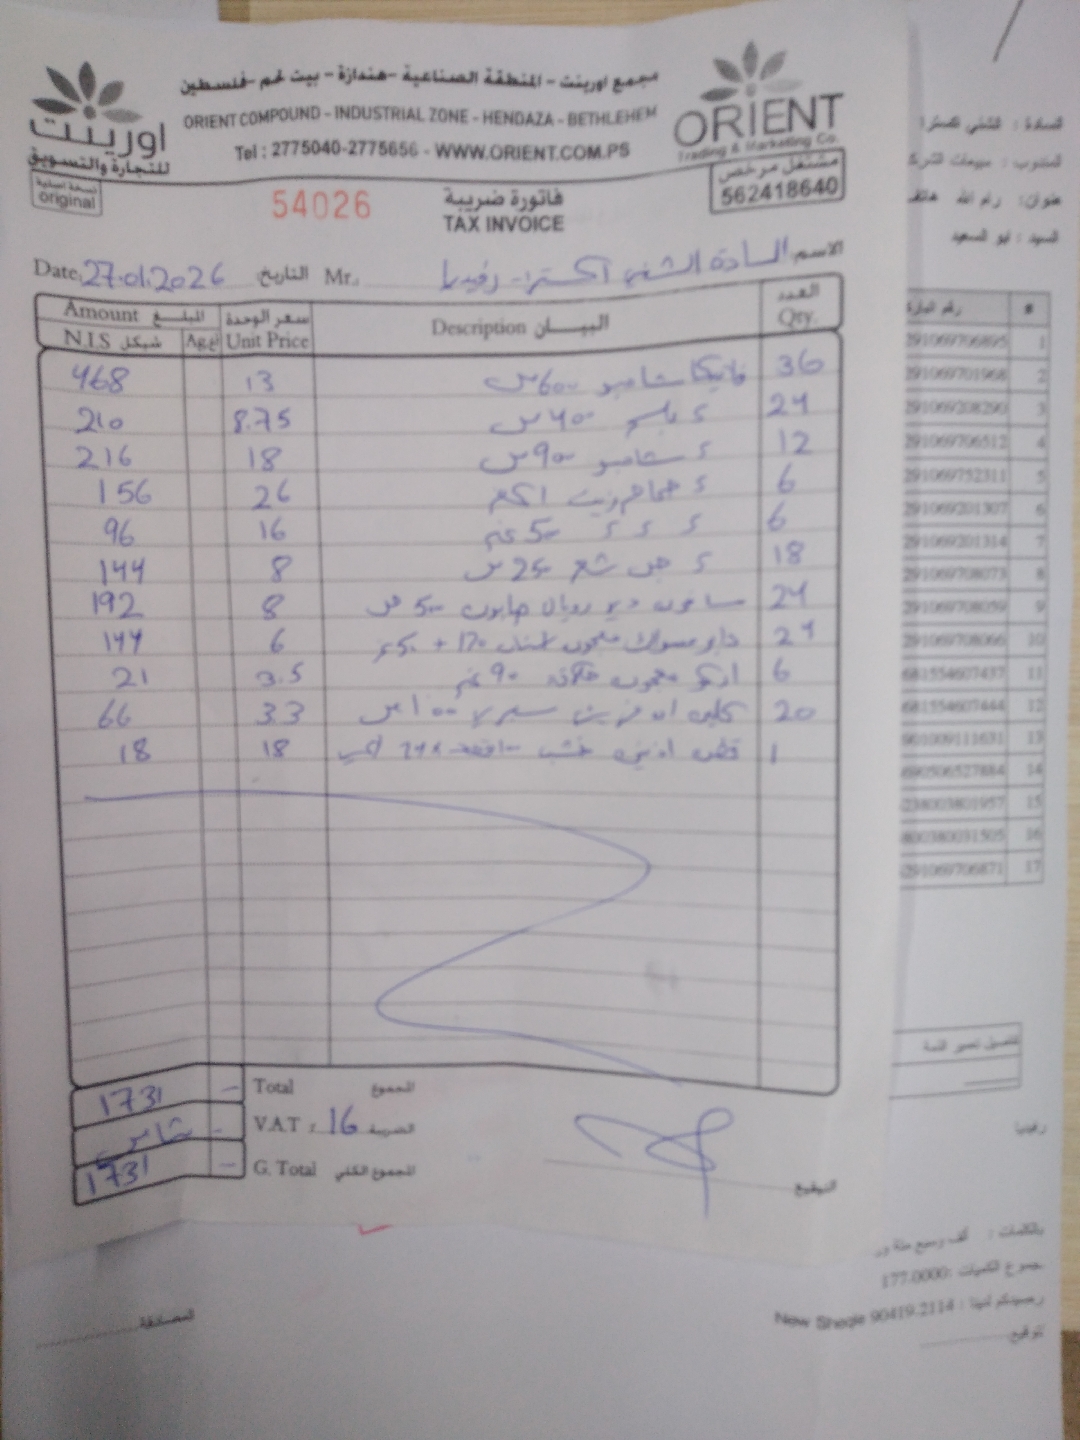 مجمع اورينت - المنطقة الصناعية - هندازة - بيت لحم - فلسطين
ORIENT COMPOUND - INDUSTRIAL ZONE - HENDAZA - BETHLEHEM
Tel : 2775040-2775656 - WWW.ORIENT.COM.PS
اورينت
للتجارة والتسويق
ORIENT
Trading & Marketing Co.
نسخة اصلية
original
54026
فاتورة ضريبة
TAX INVOICE
مشتغل مرخص
562418640
Date: 27.01.2026 التاريخ: Mr.: السادة الشني اكسترا - رفيديا الاسم:
Amount المبلغ سعر الوحدة البيـــان Description العدد
N.I.S شيكل Ag. اغ Unit Price Qty.
468 13 فاتيكا شامبو 600 مل 36
210 8.75 بلسم 400 مل 24
216 18 شامبو 900 مل 12
156 26 حمام زيت 1 كغم 6
96 16 500 غم 6
144 8 جل شعر 250 مل 18
192 8 صابون 500 مل 24
144 6 دابر مسواك معجون اسنان 170 + 50 غم 24
21 3.5 اركو معجون حلاقة 90 غم 6
66 3.3 100 مل 20
18 18 خشب 1
1731 - Total المجموع
شامل - V.A.T : 16 الضريبة
1731 - G. Total المجموع الكلي
التوقيع
المصادقة
السادة : الشني اكسترا
المندوب : مبيعات الشركة
عنوان: رام الله هاتف
السيد : ابو السعيد
# رقم المادة
1 291069706895
2 291069701968
3 291069208290
4 291069706512
5 291069752311
6 291069201307
7 291069201314
8 291069708073
9 291069708059
10 291069708066
11 681554607437
12 681554607444
13 901009111631
14 690506527884
15 238003801957
16 800380031505
17 291069706871
رفيديا
بالكلمات : الف وسبع مئة و
مجموع الكميات :177.0000
رصيدكم لدينا : New Sheqle 90419.2114
توقيع